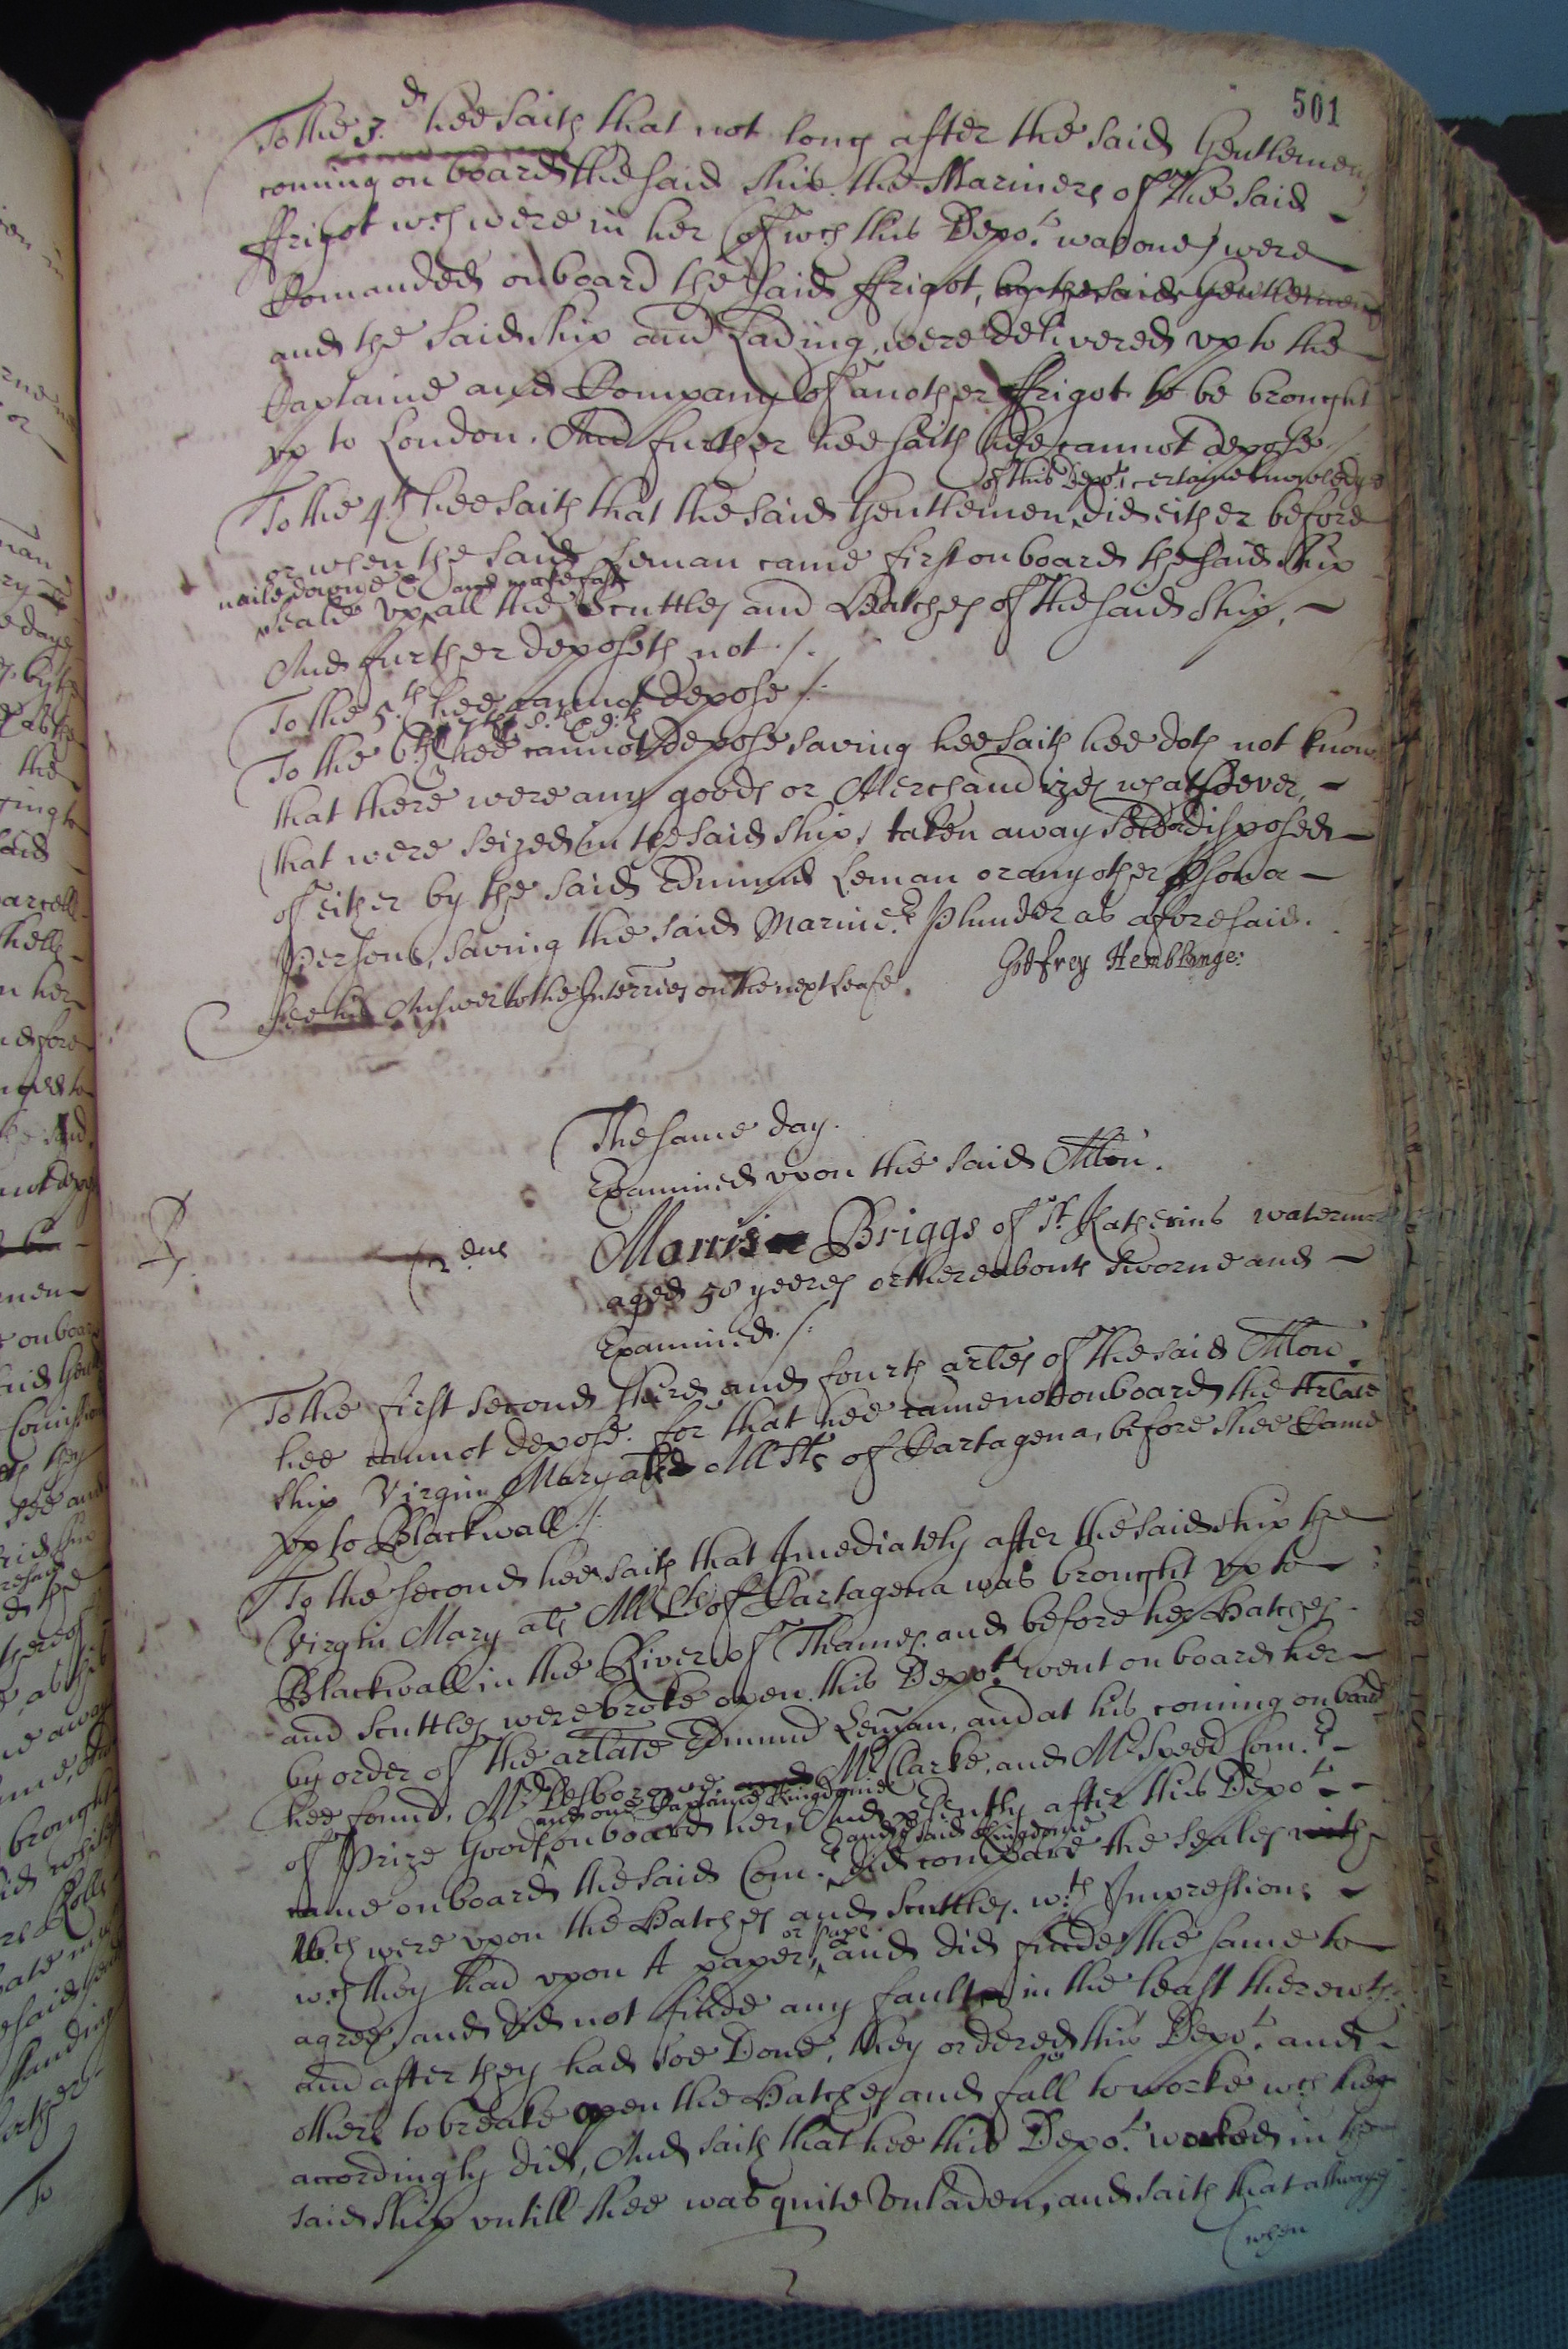 501
To the 3.d hee saith that not long after the said Gentlemens
coming on board the said ship the Mariners of the said
ffrigot wch were in her (of wch this Depot. was one) were
Comanded on board the said ffrigot, by the said Gentlemen
and the said ship and Lading were delivered vp to the
Captaine and Company of another ffrigot to be brought
vp to London. And further hee saith hee cannot depose./
of this Depots certaine knowledge
To the 4th hee saith that the said Gentlemen did either before
or when the said Leman came first on board the said ship
naile downe & and make fast
seale vp all the Scuttles and Hatches of the said ship,
And further deposeth not./.
To the 5.th hee cannot depose/.
7th 8.th & 9.th
To the 6th hee cannot depose saving hee saith hee doth not know
that there were any goods or Merchandizes whatsoever,
that were seized in the said ship, taken away sold or disposed
of either by the said Edmund Leman or any other pson or
persons, saving the said Marinrs. Plunder as aforesaid.
Godfrey Hemblinge:
See his Answer to the Interries on the next leafe.
The same day.
Examined vpon the said Allon.
2 dus
Morris Briggs of St. Katherins waterman
aged 58 yeeres or thereabouts sworne and
Examined./.
To the first second third and fourth arles of the said Allon.
hee cannot depose. for that hee came not on board the Arlate
ship Virgin Mary als All Sts of Cartagena, before shee came
vp to Blackwall./.
To the second hee saith that Imediately after the said ship the
Virgin Mary als All Sts of Cartagena was brought vp to
Blackwall in the River of Thames. and before her Hatches
and Scuttles were broke open this Depot. went on board her
by order of the arlate Edmund Leman, and at his coming on board
hee found, Mr Desborowe, and Mr Clarke, and Mr Speed Comrs.
and one Captaine Kingdome
of Prize Goods on board her, And psently after this Depot.
and ye said Kingdome
came on board the said Comrs. did compare the seales with
wch were vpon the Hatches and Scuttles. wth Impressions
or pape
wch they had vpon A paper, and did finde the same to
agree, and did not finde any fault in the least therewth,
and after they had soe Done, they ordered this Depot. and
others to breake open the Hatches and fall to worke wch hee
accordingly did, And saith that hee this Depot. worked in the
said ship vntill shee was quite Vnladen, and saith that allwayes
when